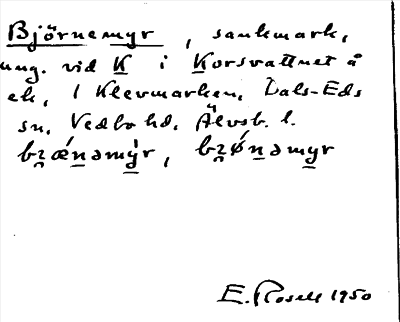 Björnemyr, sankmark,
ung. vid K i Korsvattnet å
ek, 1 Klevmarken, Dals-Eds
sn, Vedbo hd, Älvsb. l.
bʒǽnəmẏr, bʒǿnəmyr
E. Rosell 1950